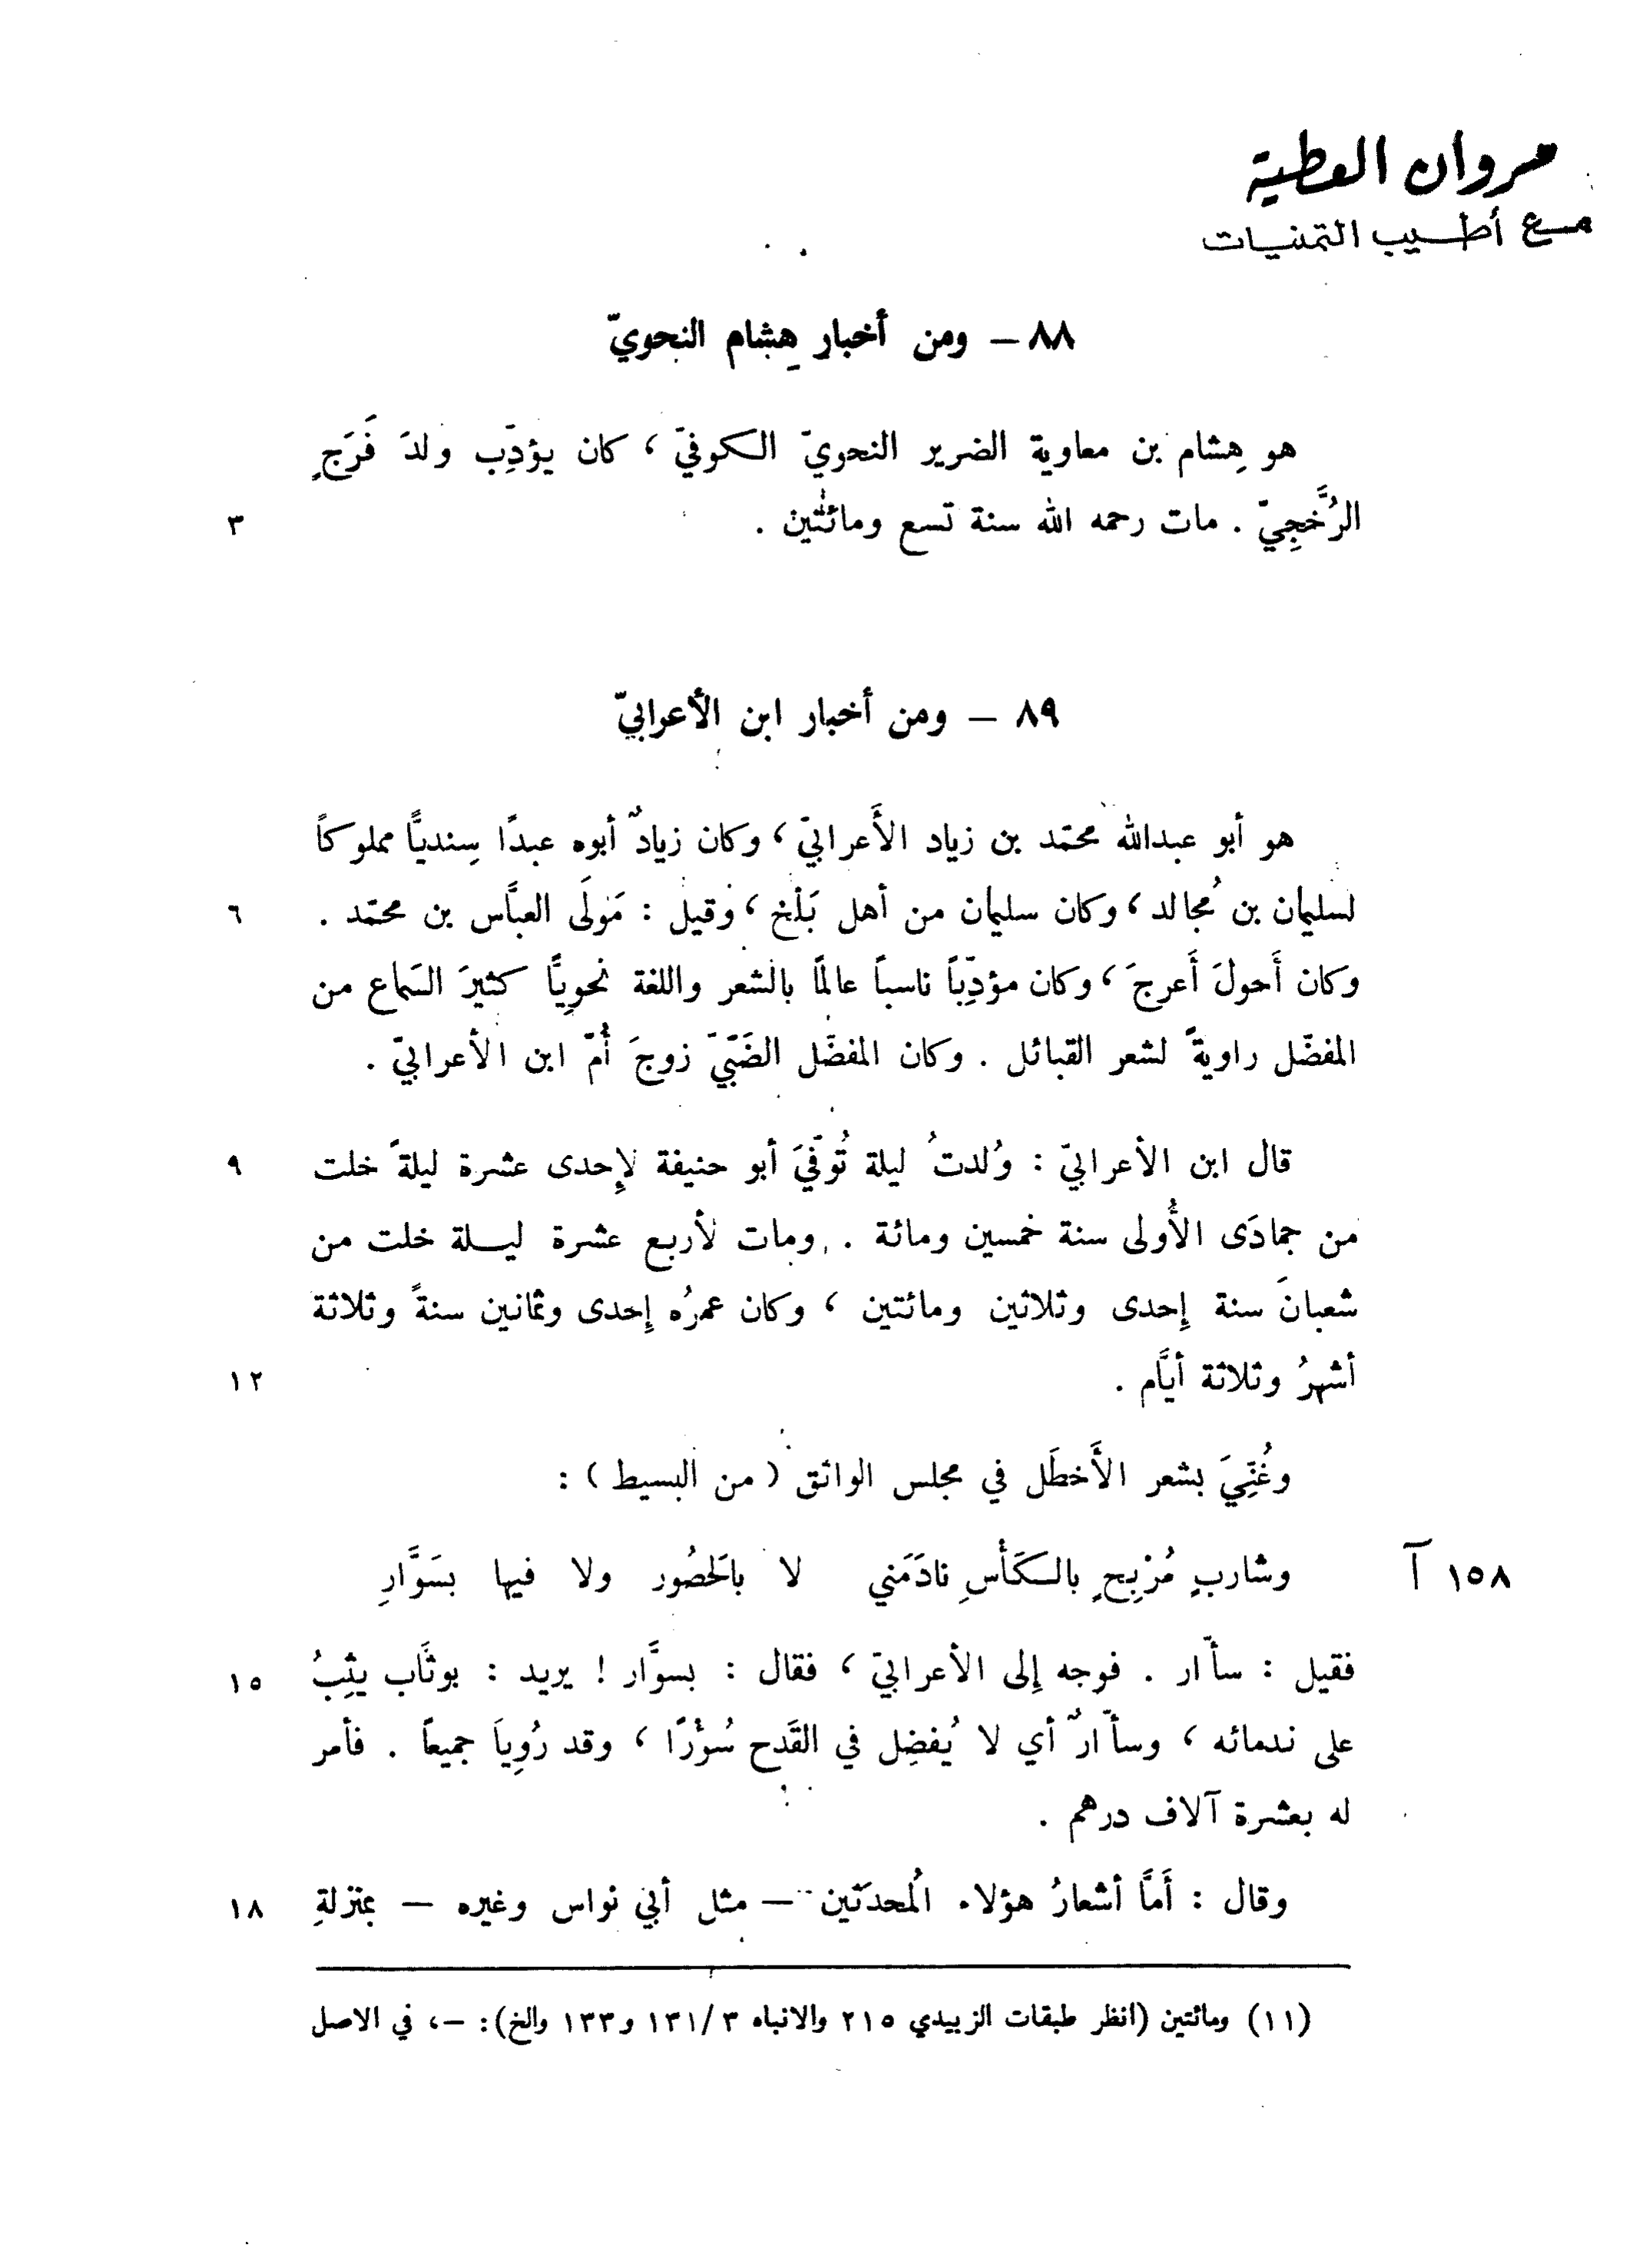 مروان العطية
مع أطيب التمنيات
٨٨ – ومن أخبار هِشام النحويّ
هو هِشام بن معاوية الضرير النحويّ الكوفيّ ، كان يؤدِّب ولدَ فَرَجٍ
الرُّخَّجِيّ . مات رحمه الله سنة تسع ومائتين .
٣
٨٩ – ومن أخبار ابن الأعرابيّ
هو أبو عبدالله محمّد بن زياد الأَعرابيّ ، وكان زيادٌ أبوه عبدًا سِنديًّا مملوكاً
لسليمان بن مُجالد ، وكان سليمان من أهل بَلْخ ، وقيل : مَولَى العبَّاس بن محمّد .
٦
وكان أَحولَ أَعرجَ ، وكان مؤدِّباً ناسباً عالمًا بالشعر واللغة نحويًّا كثيرَ السَماع من
المفضّل راويةً لشعر القبائل . وكان المفضَّل الضَبّيّ زوجَ أُمّ ابن الأعرابيّ .
قال ابن الأعرابيّ : وُلدتُ ليلة تُوفّيَ أبو حنيفة لإِحدى عشرة ليلةً خلت
٩
من جمادَى الأُولى سنة خمسين ومائة . ومات لأربع عشرة ليلة خلت من
شعبانَ سنة إِحدى وثلاثين ومائتين ، وكان عمرُه إِحدى وثمانين سنةً وثلاثة
أشهرُ وثلاثة أيَّام .
١٢
وغُنِّيَ بشعر الأَخطَل في مجلس الواثق ( من البسيط ) :
١٥٨ آ
وشاربٍ مُرْبِحٍ بالكَأْسِ نادَمَني لا بالحَصُور ولا فيها بسَوَّارِ
فقيل : سأّار . فوجه إِلى الأعرابيّ ، فقال : بسوَّار ! يريد : بوثَّاب يثِبُ
١٥
على ندمائه ، وسأّارٌ أي لا يُفضِل في القَدح سُؤْرًا ، وقد رُوِيَا جميعاً . فأمر
له بعشرة آلاف درهم .
وقال : أَمَّا أشعارُ هؤلاء المُحدَثين – مثل أبي نواس وغيره – بمنزلةِ
١٨
(١١) ومائتين (انظر طبقات الزبيدي ٢١٥ والانباه ٣/١٣١ و١٣٣ والخ): –، في الاصل